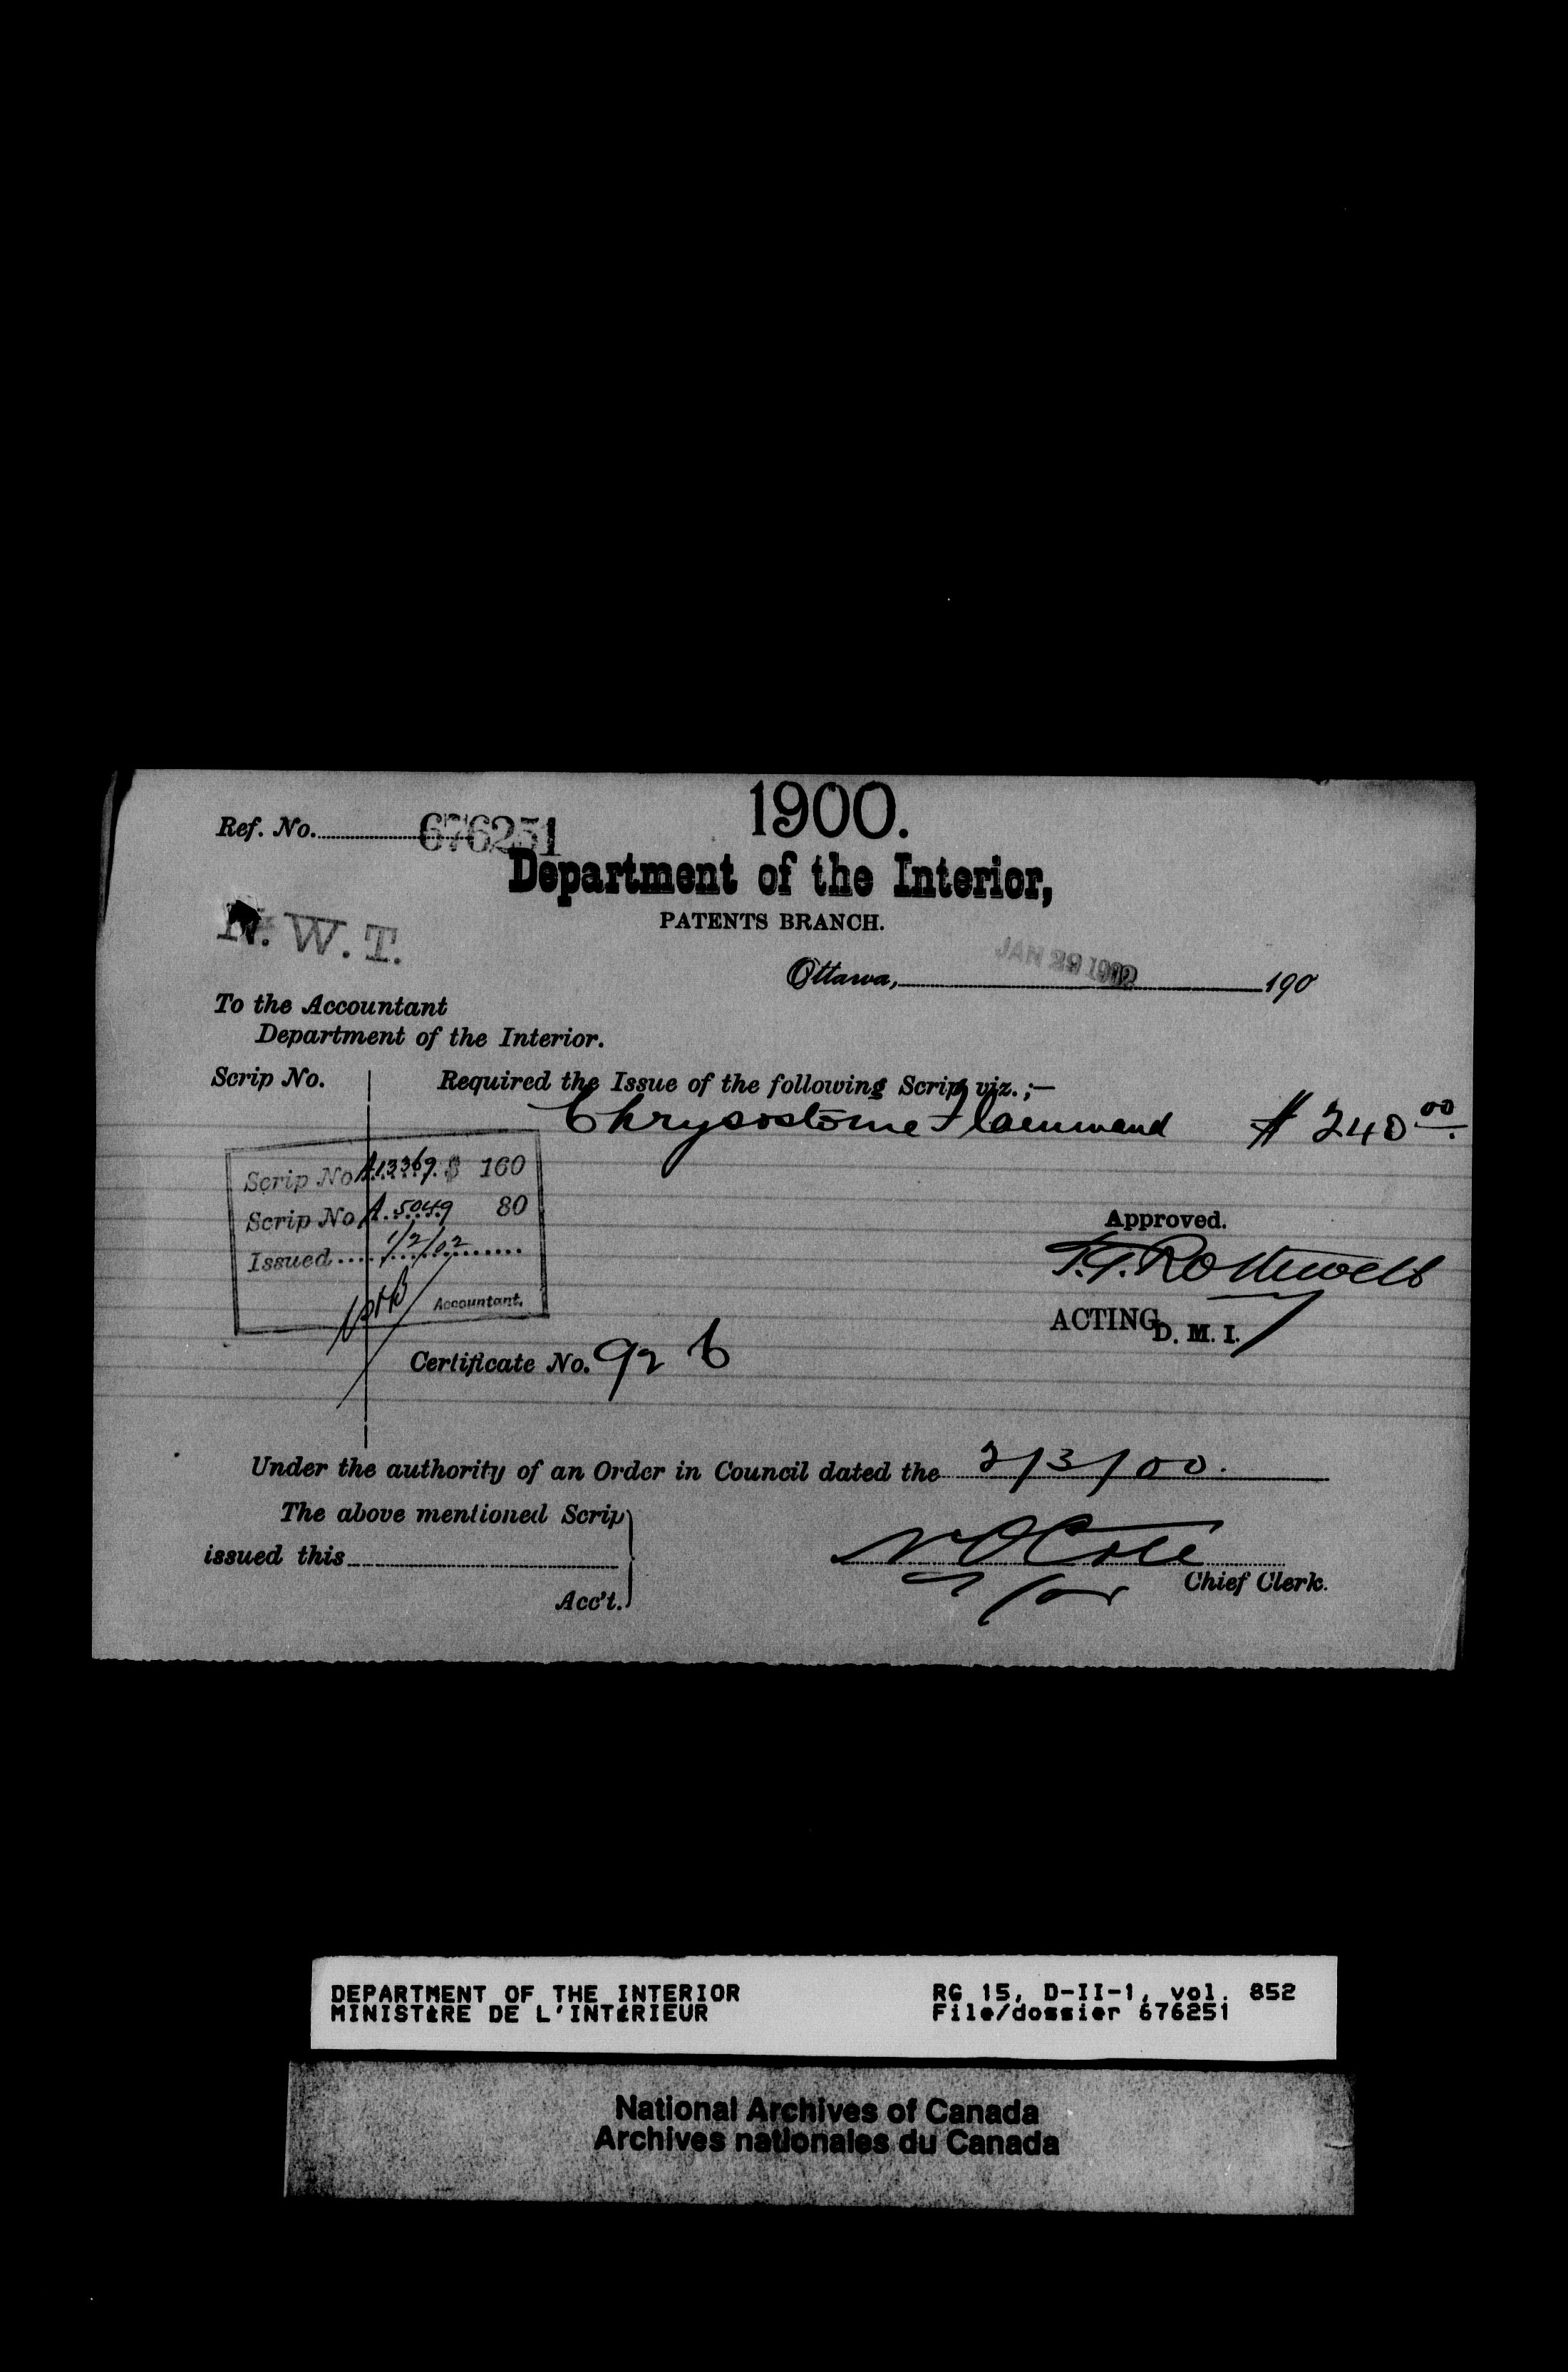 1900.
Ref. No. 676251
Department of the Interior,
PATENTS BRANCH.
N. W. T.
Ottawa, JAN 29 1902 190
To the Accountant
Department of the Interior.
Scrip No. Required the Issue of the following Scrip, viz.;—
Chrysostome Flammand $ 240 00
Scrip No A.13369. $ 160
Scrip No A.5049 80
Issued.... 1/2/02
Accountant.
Approved.
T.G. Rothwell
ACTING D. M. I.
Certificate No. 92 b
Under the authority of an Order in Council dated the 2/3/00.
The above mentioned Scrip
issued this
Acc't.
N O Cote
for Chief Clerk.
DEPARTMENT OF THE INTERIOR RG 15, D-II-1, vol. 852
MINISTÈRE DE L'INTÉRIEUR File/dossier 676251
National Archives of Canada
Archives nationales du Canada